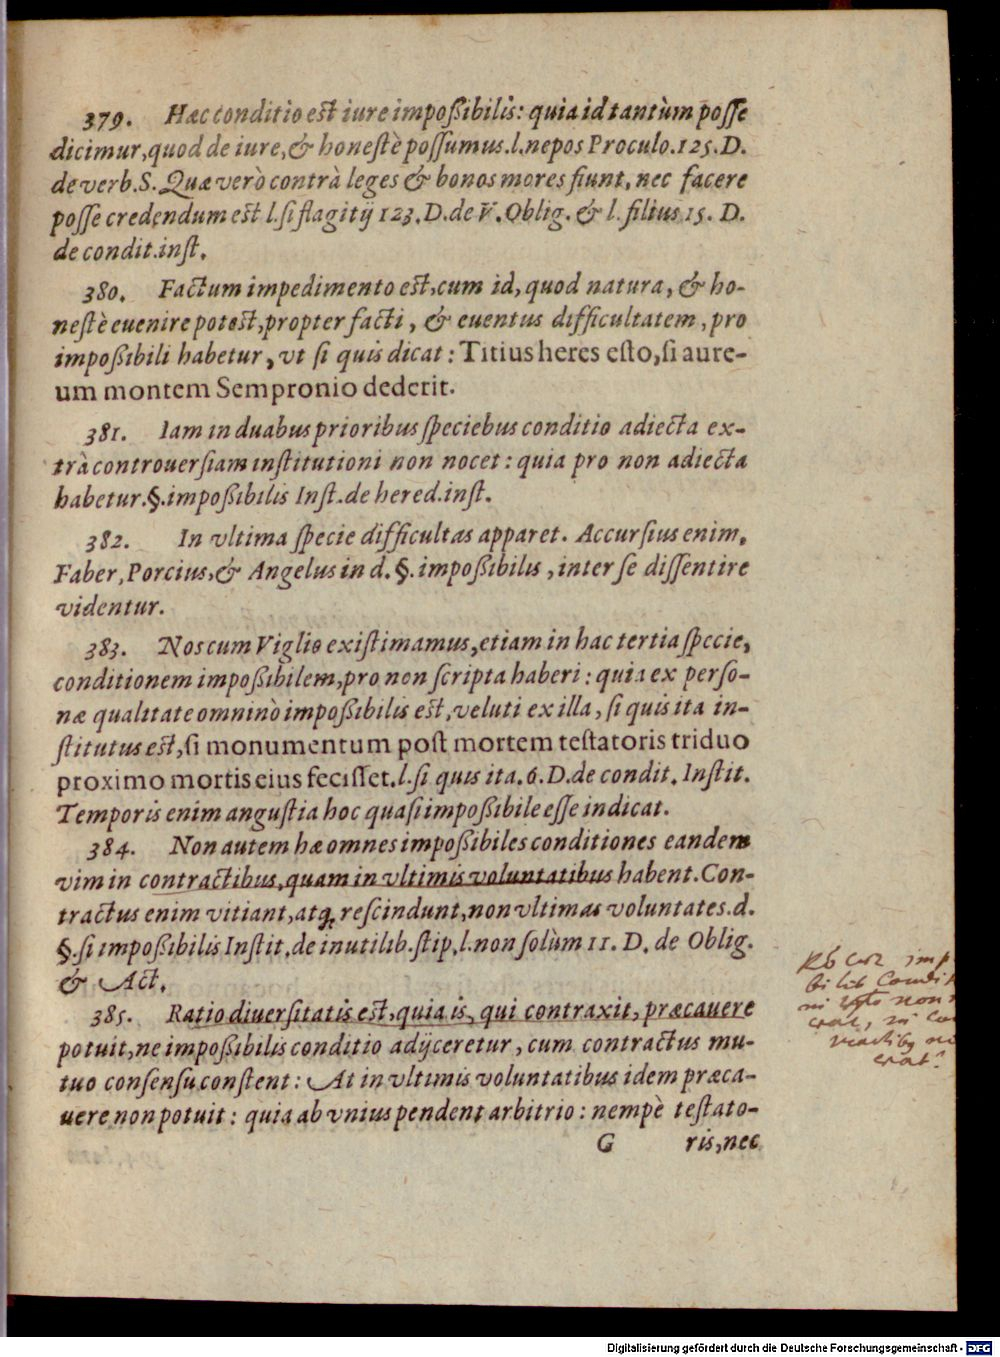 379. Hæc conditio est iure impoßibilis: quia id tantùm posse
dicimur, quod de iure, & honestè possumus. l. nepos Proculo. 125. D.
de verb. S. Quæ verò contrà leges & bonos mores fiunt, nec facere
posse credendum est l. si flagitij 123. D. de V. Oblig. & l. filius 15. D.
de condit. inst.
380. Factum impedimento est, cum id, quod natura, & ho-
nestè euenire potest, propter facti, & euentus difficultatem, pro
impoßibili habetur, vt si quis dicat: Titius heres esto, si aure-
um montem Sempronio dederit.
381. Iam in duabus prioribus speciebus conditio adiecta ex-
trà controuersiam institutioni non nocet: quia pro non adiecta
habetur. §. impoßibilis Inst. de hered. inst.
382. In vltima specie difficultas apparet. Accursius enim,
Faber, Porcius, & Angelus in d. §. impoßibilis, inter se dissentire
videntur.
383. Nos cum Viglio existimamus, etiam in hac tertia specie,
conditionem impoßibilem, pro non scripta haberi: quia ex perso-
næ qualitate omninò impoßibilis est, veluti ex illa, si quis ita in-
stitutus est, si monumentum post mortem testatoris triduo
proximo mortis eius fecisset. l. si quis ita. 6. D. de condit. Instit.
Temporis enim angustia hoc quasi impoßibile esse indicat.
384. Non autem hæ omnes impoßibiles conditiones eandem
vim in contractibus, quam in vltimis voluntatibus habent. Con-
tractus enim vitiant, atq; rescindunt, non vltimas voluntates. d.
§. si impoßibilis Instit. de inutilib. stip. l. non solùm 11. D. de Oblig.
& Act.
385. Ratio diuersitatis est, quia is, qui contraxit, præcauere
potuit, ne impoßibilis conditio adijceretur, cum contractus mu-
tuo consensu constent: At in vltimis voluntatibus idem præca-
uere non potuit: quia ab vnius pendent arbitrio: nempè testato-
G ris, nec
cur imp
non
Digitalisierung gefördert durch die Deutsche Forschungsgemeinschaft - DFG